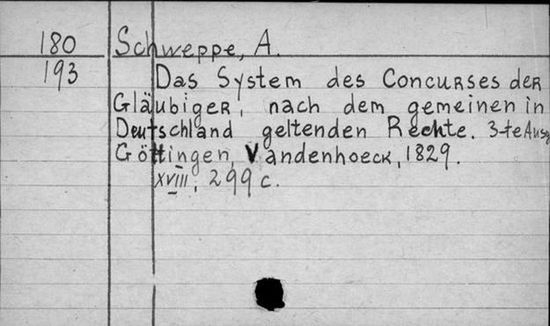 180 Schweppe, A.
193 Das System des Concurses der
Gläubiger, nach dem gemeinen in
Deutschland geltenden Rechte. 3-te Ausg
Göttingen, Vandenhoeck, 1829.
XVIII, 299 c.